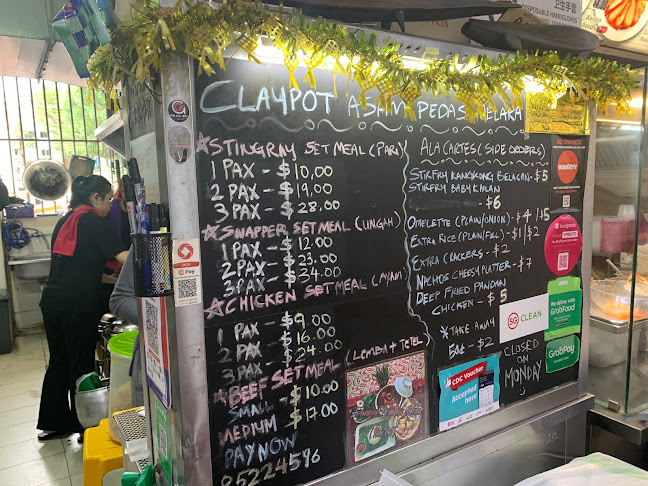 CLAYPOT ASAM PEDAS MELAKA
★STINGRAY SET MEAL (PARI)
1 PAX - $10.00
2 PAX - $19.00
3 PAX - $28.00
★SNAPPER SET MEAL (UNGAH)
1 PAX - $12.00
2 PAX - $23.00
3 PAX - $34.00
★CHICKEN SET MEAL (AYAM)
1 PAX - $9.00
2 PAX - $16.00
3 PAX - $24.00
★BEEF SET MEAL (LEMBU + TETEL)
SMALL - $10.00
MEDIUM - $17.00
PAYNOW
85224596
ALA CARTES (SIDE ORDERS)
STIRFRY KANGKONG BELACAN - $5
STIRFRY BABY KAILAN
- $6
OMELETTE (PLAIN/ONION) - $4 / $5
EXTRA RICE (PLAIN/FULL) - $1 / $2
EXTRA CRACKERS - $2
NACHOS CHEESY PLATTER - $7
DEEP FRIED PANDAN
CHICKEN - $5
*TAKE AWAY
50¢ - $2
CLOSED
ON
MONDAY
SG
CLEAN
CDC Voucher
Accepted
here
foodpanda
DELIVER
GrabFood
GrabPay
Pay
卫生手套
DISPOSABLE HDPE GLOVES